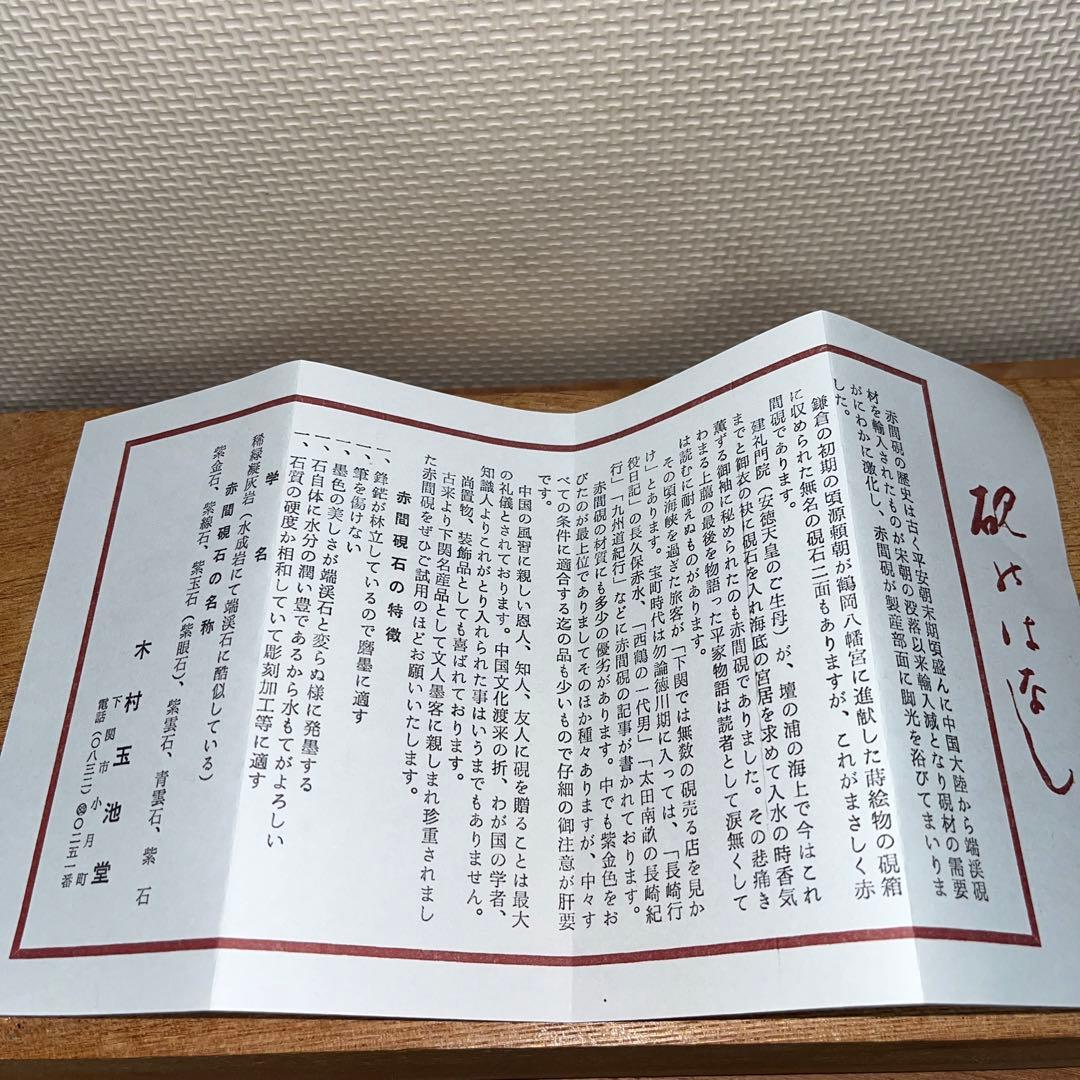 硯のはなし
赤間硯の歴史は古く平安朝末期頃盛んに中国大陸から端渓硯
材を輸入されたものが宋朝の没落以来輸入減となり硯材の需要
がにわかに激化し、赤間硯が製産部面に脚光を浴びてまいりま
した。
鎌倉の初期の頃源頼朝が鶴岡八幡宮に進献した蒔絵物の硯箱
に収められた無名の硯石二面もありますが、これがまさしく赤
間硯であります。
建礼門院（安徳天皇のご生母）が、壇の浦の海上で今はこれ
までと御衣の袂に硯石を入れ海底の宮居を求めて入水の時香気
薫ずる御袖に秘められたのも赤間硯でありました。その悲痛き
わまる上﨟の最後を物語った平家物語は読者として涙無くして
は読むに耐えぬものがあります。
その頃海峡を過ぎた旅客が「下関では無数の硯売る店を見か
け」とあります。宝町時代は勿論徳川期に入っては、「長崎行
役日記」の長久保赤水、「西鶴の一代男」「太田南畝の長崎紀
行」「九州道紀行」などに赤間硯の記事が書かれております。
赤間硯の材質にも多少の優劣があります。中でも紫金色をお
びたのが最上位でありましてそのほか種々ありますが、中々す
べての条件に適合する迄の品も少いもので仔細の御注意が肝要
です。
中国の風習に親しい恩人、知人、友人に硯を贈ることは最大
の礼儀とされております。中国文化渡来の折、わが国の学者、
知識人よりこれがとり入れられた事はいうまでもありません。
尚置物、装飾品としても喜ばれております。
古来より下関名産品として文人墨客に親しまれ珍重されまし
た赤間硯をぜひご試用のほどお願いいたします。
赤間硯石の特徴
一、鋒鋩が林立しているので磨墨に適す
一、筆を傷けない
一、墨色の美しさが端渓石と変らぬ様に発墨する
一、石自体に水分の潤い豊であるから水もてがよろしい
一、石質の硬度か相和していて彫刻加工等に適す
学名
稀緑凝灰岩（水成岩にて端渓石に酷似している）
赤間硯石の名称
紫金石、紫線石、紫玉石（紫眼石）、紫雲石、青雲石、紫石
木村玉池堂
下関市小月町
電話（〇八三二）〇二五一番